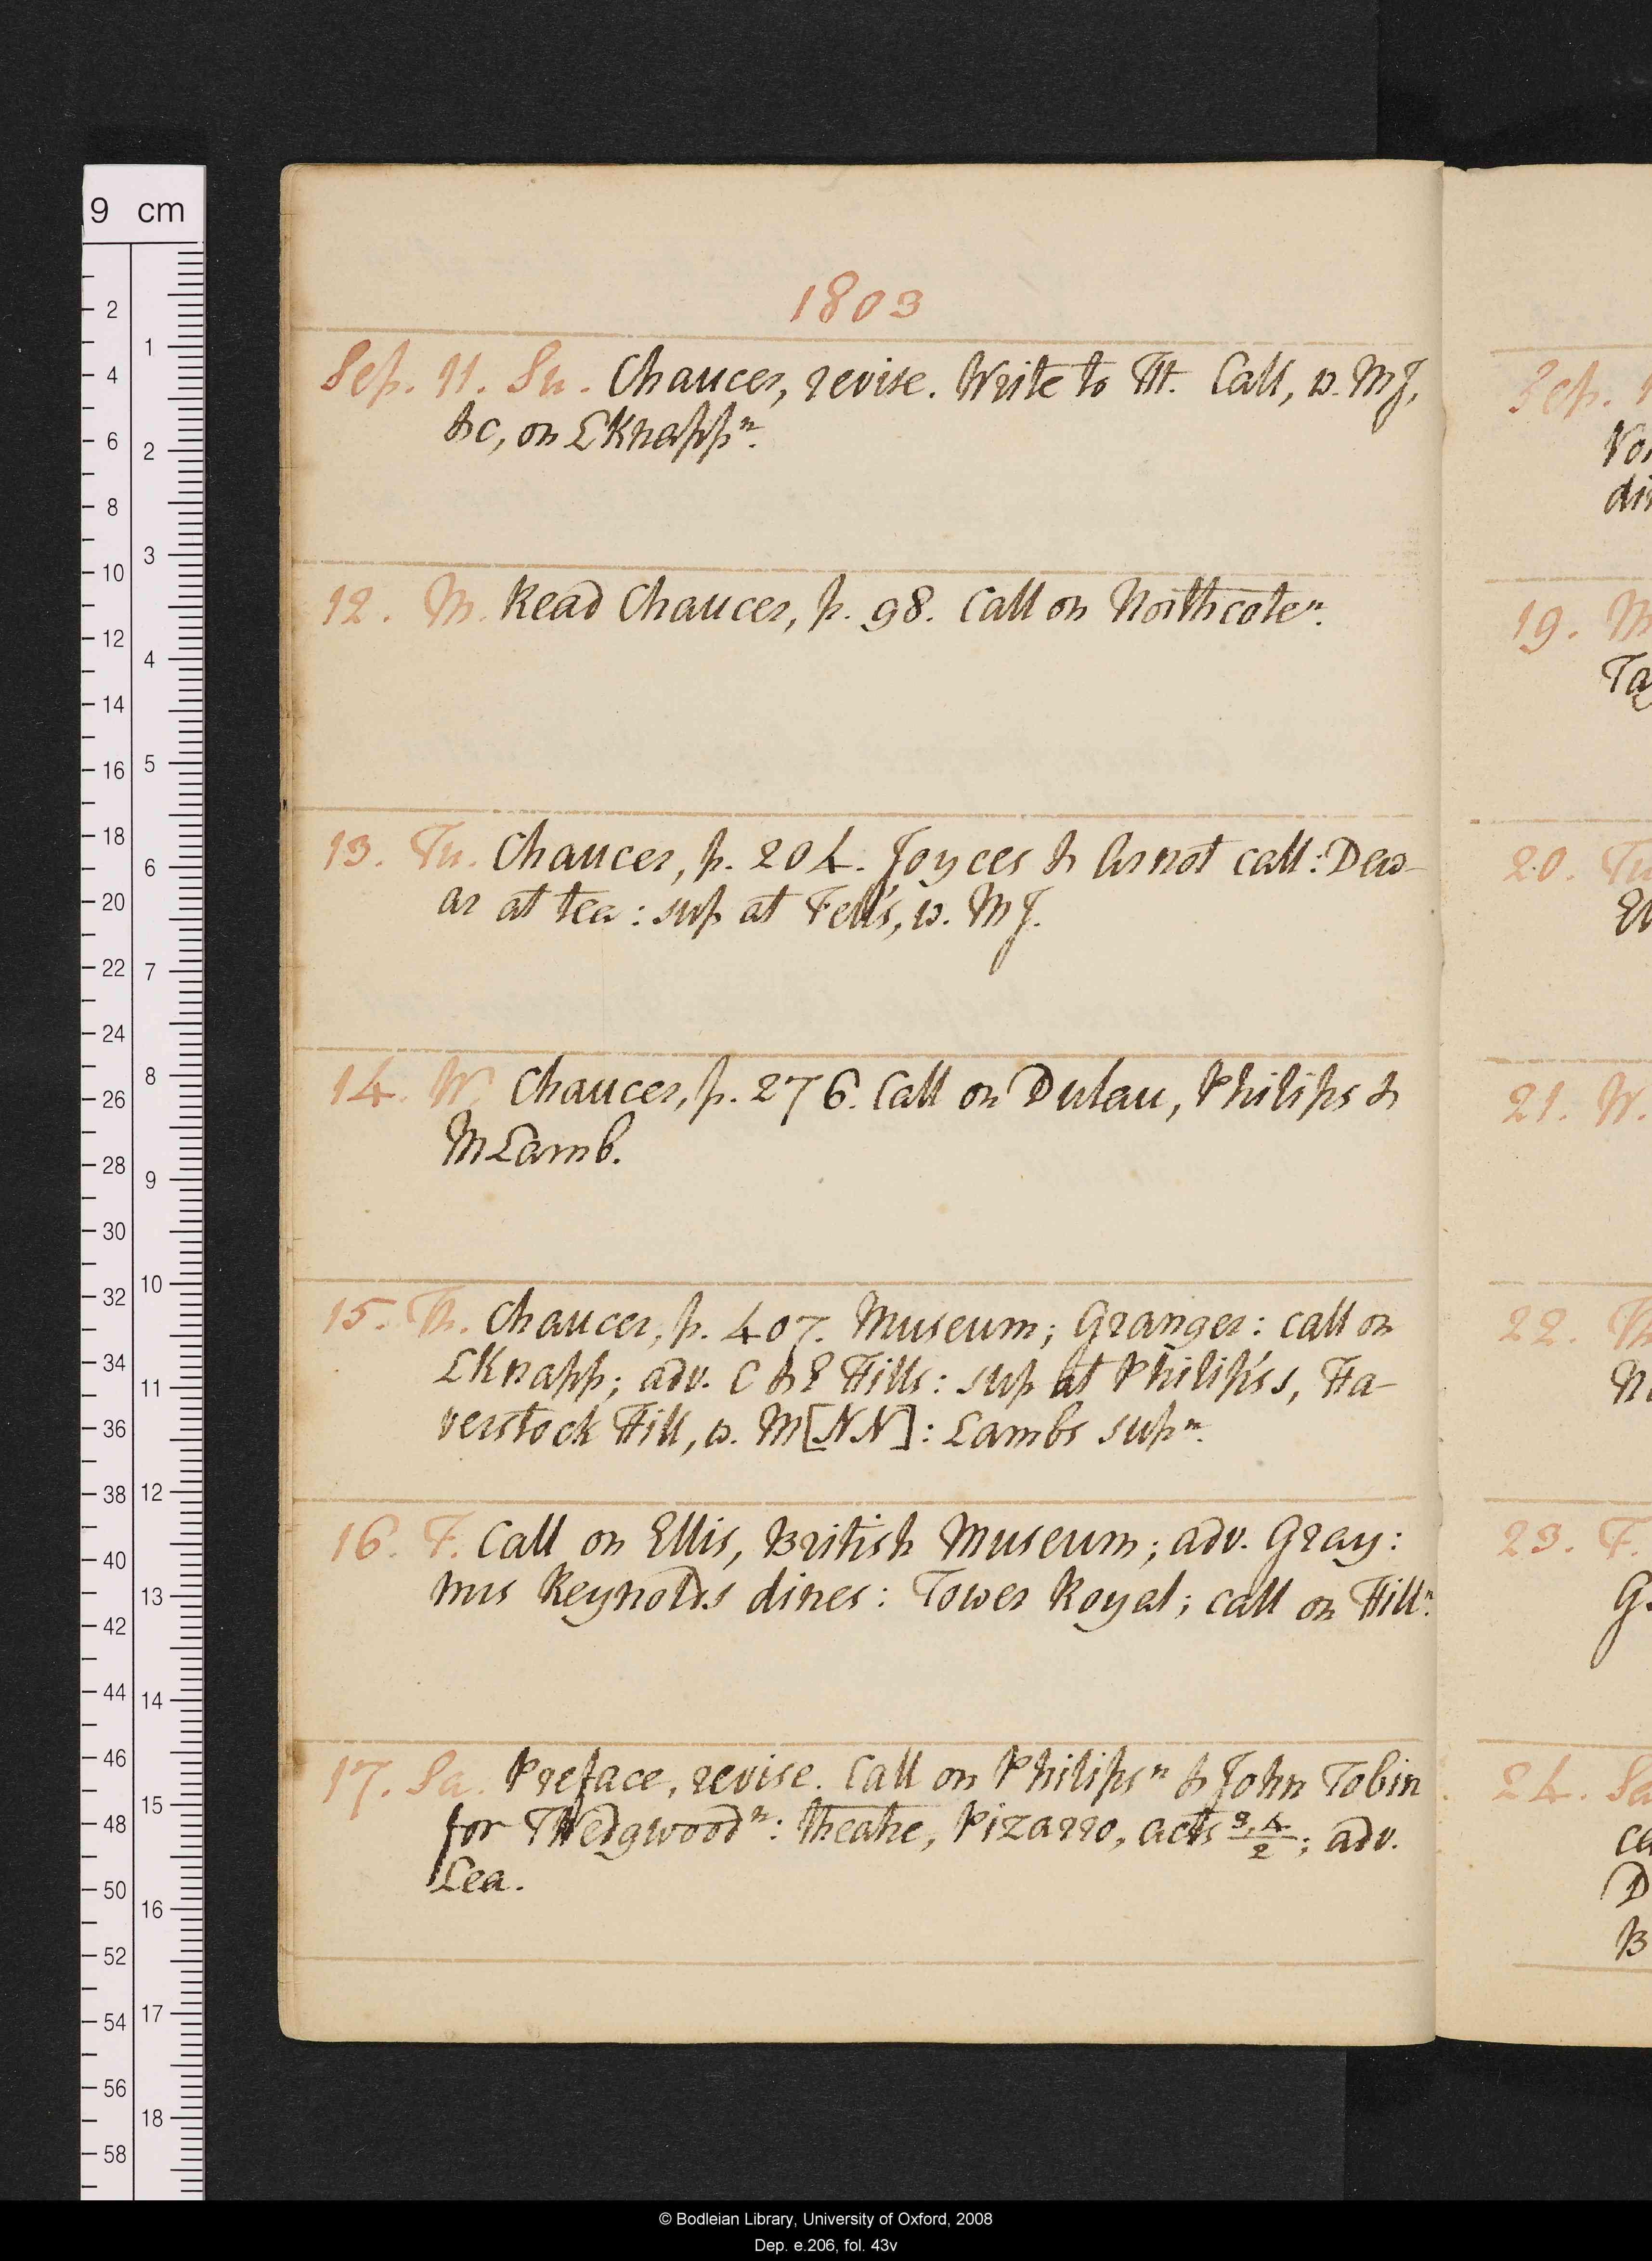 1803
Sep. 11. Su. Chaucer, revise. Write to TH. Call, w. MJ,
&c, on LKnapp n.
12. M. Read Chaucer, p. 98. Call on Northcote n.
13. Tu. Chaucer, p. 204. Joyces & Arnot call: Dew-
ar at tea: sup at Fell's, w. MJ.
14. W. Chaucer, p. 276. Call on Dulau, Philips &
MLamb.
15. Th. Chaucer, p. 407. Museum; Granger: call on
LKnapp; adv. C & E Hills: sup at Philips's, Ha-
verstock Hill, w. M[NN]: Lambs sup n.
16. F. Call on Ellis, British Museum; adv. Gray:
mrs Reynolds dines: Tower Royal; call on Hill n.
17. Sa. Preface, revise. Call on Philips n & John Tobin
for TWedgwood n: theatre, Pizarro, acts 3, 4/2; adv.
Lea.
Sep. 1
Vo
din
19. M
Ta
20. Tu
El
21. W.
22. Th
N
23. F.
G
24. Sa
ca
D
B
9 cm
2
4
6
8
10
12
14
16
18
20
22
24
26
28
30
32
34
36
38
40
42
44
46
48
50
52
54
56
58
1
2
3
4
5
6
7
8
9
10
11
12
13
14
15
16
17
18
© Bodleian Library, University of Oxford, 2008
Dep. e.206, fol. 43v